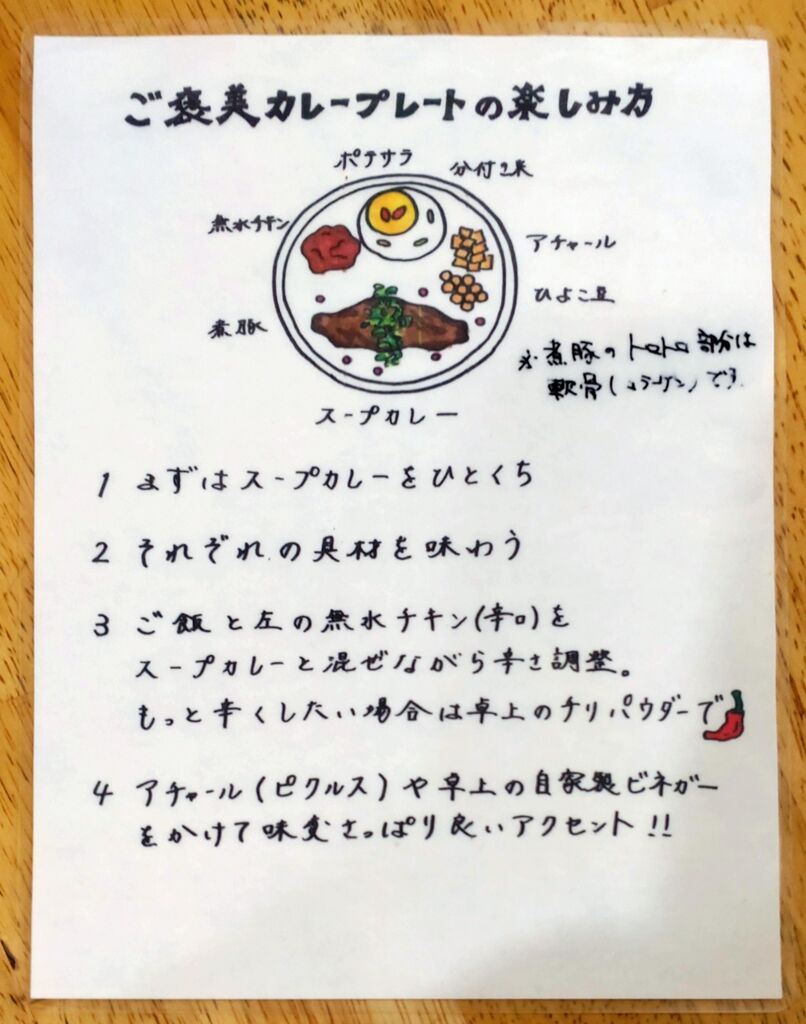 ご褒美カレープレートの楽しみ方
ポテサラ
分付き米
無水チキン
アチャール
ひよこ豆
煮豚
※煮豚のトロトロ部分は
軟骨(コラーゲン)です
スープカレー
1 まずはスープカレーをひとくち
2 それぞれの具材を味わう
3 ご飯と左の無水チキン(辛口)を
スープカレーと混ぜながら辛さ調整。
もっと辛くしたい場合は卓上のチリパウダーで
4 アチャール(ピクルス)や卓上の自家製ビネガー
をかけて味変さっぱり良いアクセント!!